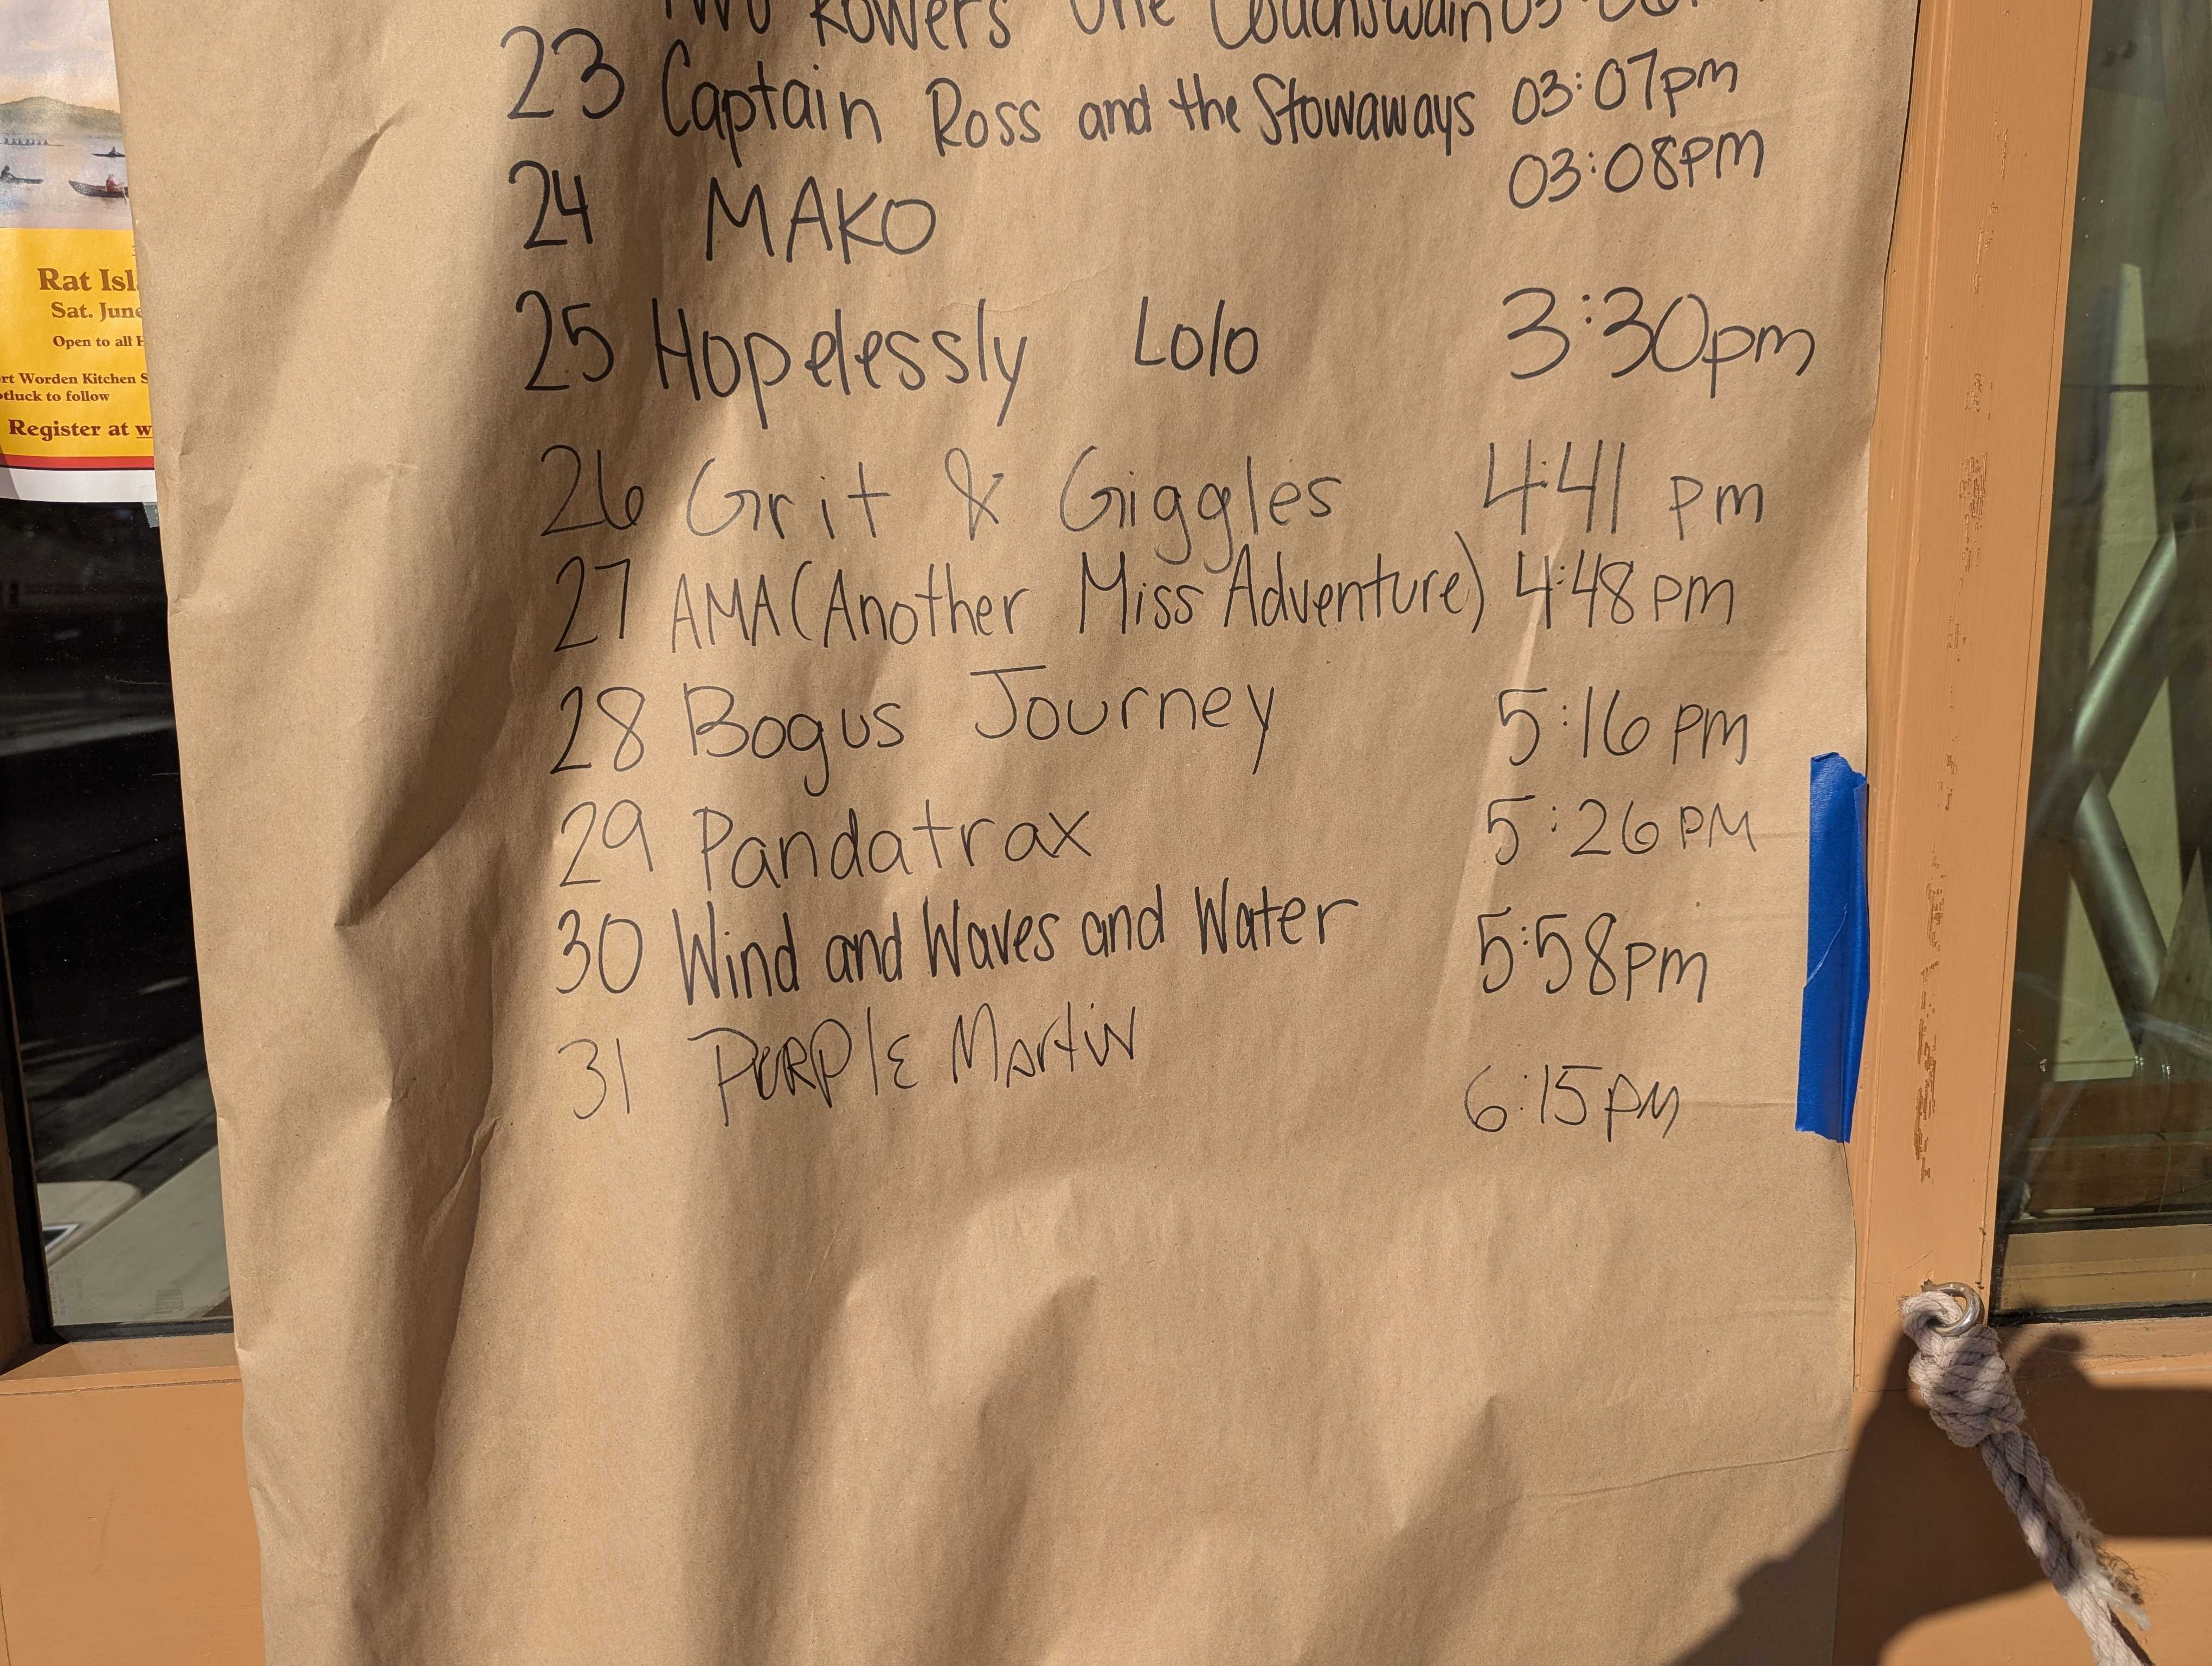 Two Rowers One Coachswain 03:06
23 Captain Ross and the Stowaways 03:07pm
24 MAKO 03:08PM
25 Hopelessly Lolo 3:30pm
26 Grit & Giggles 4:41 pm
27 AMA (Another Miss Adventure) 4:48pm
28 Bogus Journey 5:16 pm
29 Pandatrax 5:26 PM
30 Wind and Waves and Water 5:58pm
31 PURPlE Martin 6:15pm
Rat Isl
Sat. June
Open to all
rt Worden Kitchen S
otluck to follow
Register at w